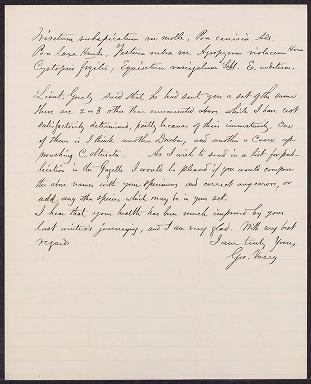 Trisetum subspicatum var molle, Poa cenisia All
Poa laxa Haenk, Festuca rubra var. Agropyrum violaceum Horn
Cystopteris fragilis, Equisetum variegatum, E. arvense.
Lieut. Greely said that he had sent you a set of the same
There are 2 or 3 other than enumerated above which I have not
satisfactorily determined, partly because of their immaturity. One
of them is I think another Draba, and another a Carex ap-
proaching C. obtusata. As I wish to send in a list for pub-
lication in the Gazette I would be pleased if you would compare
the above names with your specimens and correct any errors, or
add any other species which may be in your set.
I hear that your health has been much improved by your
last winter's journeying, and I am very glad. With my best
regards
I am truly Yours,
Geo. Vasey